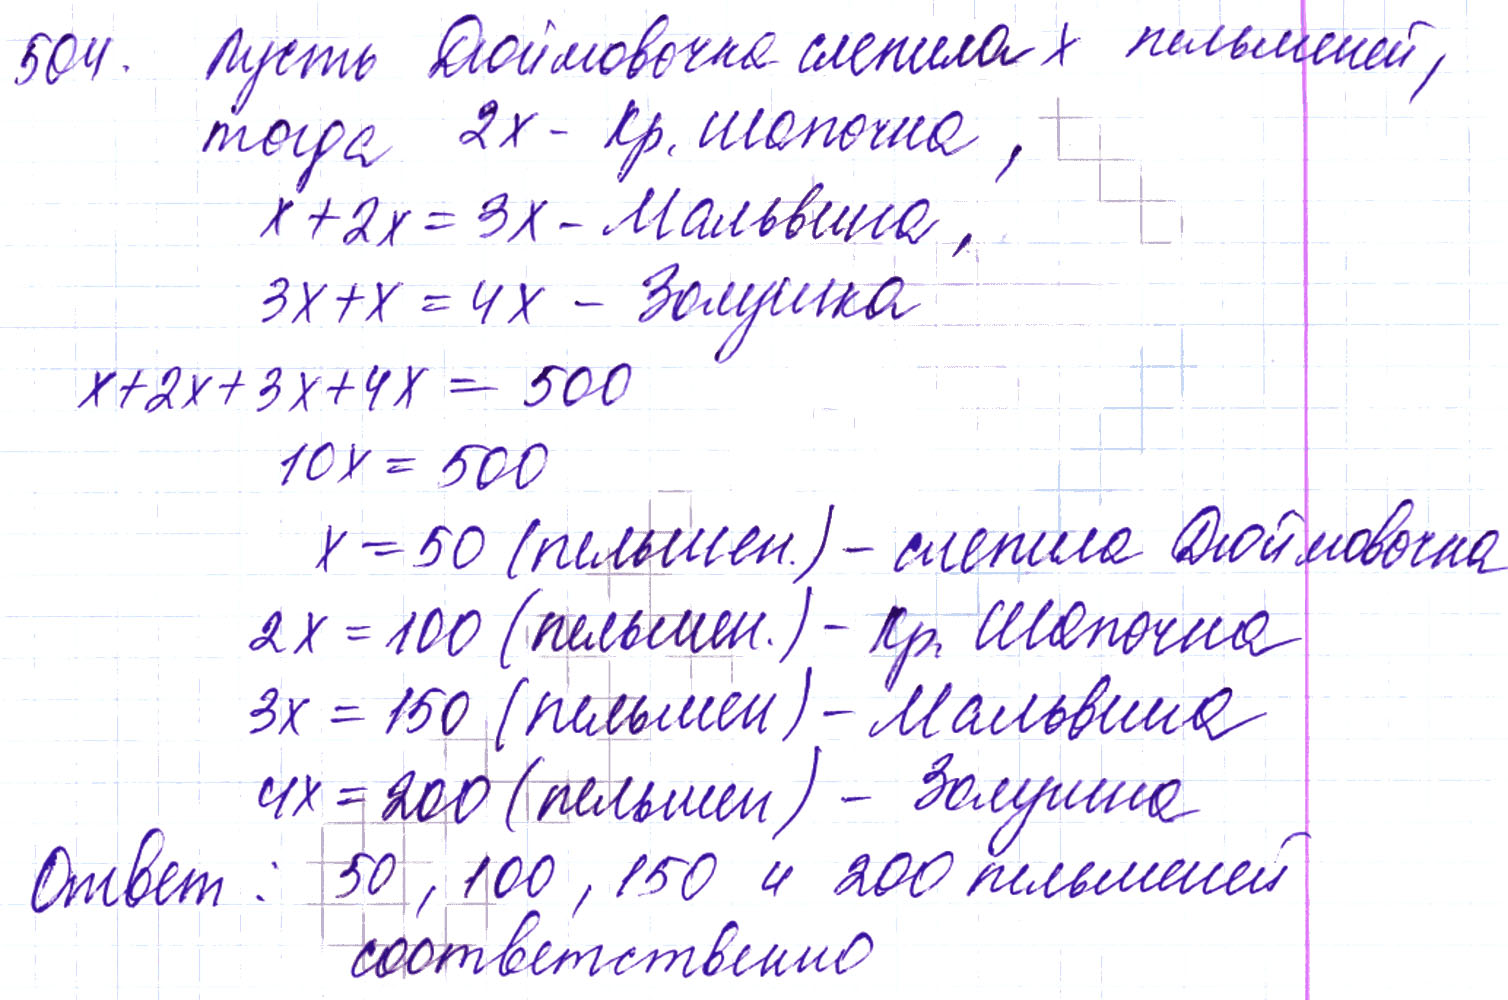 504. Пусть Дюймовочка слепила x пельменей,
тогда 2x - Кр. Шапочка,
x+2x=3x - Мальвина,
3x+x=4x - Золушка
x+2x+3x+4x=500
10x=500
x=50 (пельмен.) - слепила Дюймовочка
2x=100 (пельмен.) - Кр. Шапочка
3x=150 (пельмен) - Мальвина
4x=200 (пельмен) - Золушка
Ответ: 50, 100, 150 и 200 пельменей
соответственно